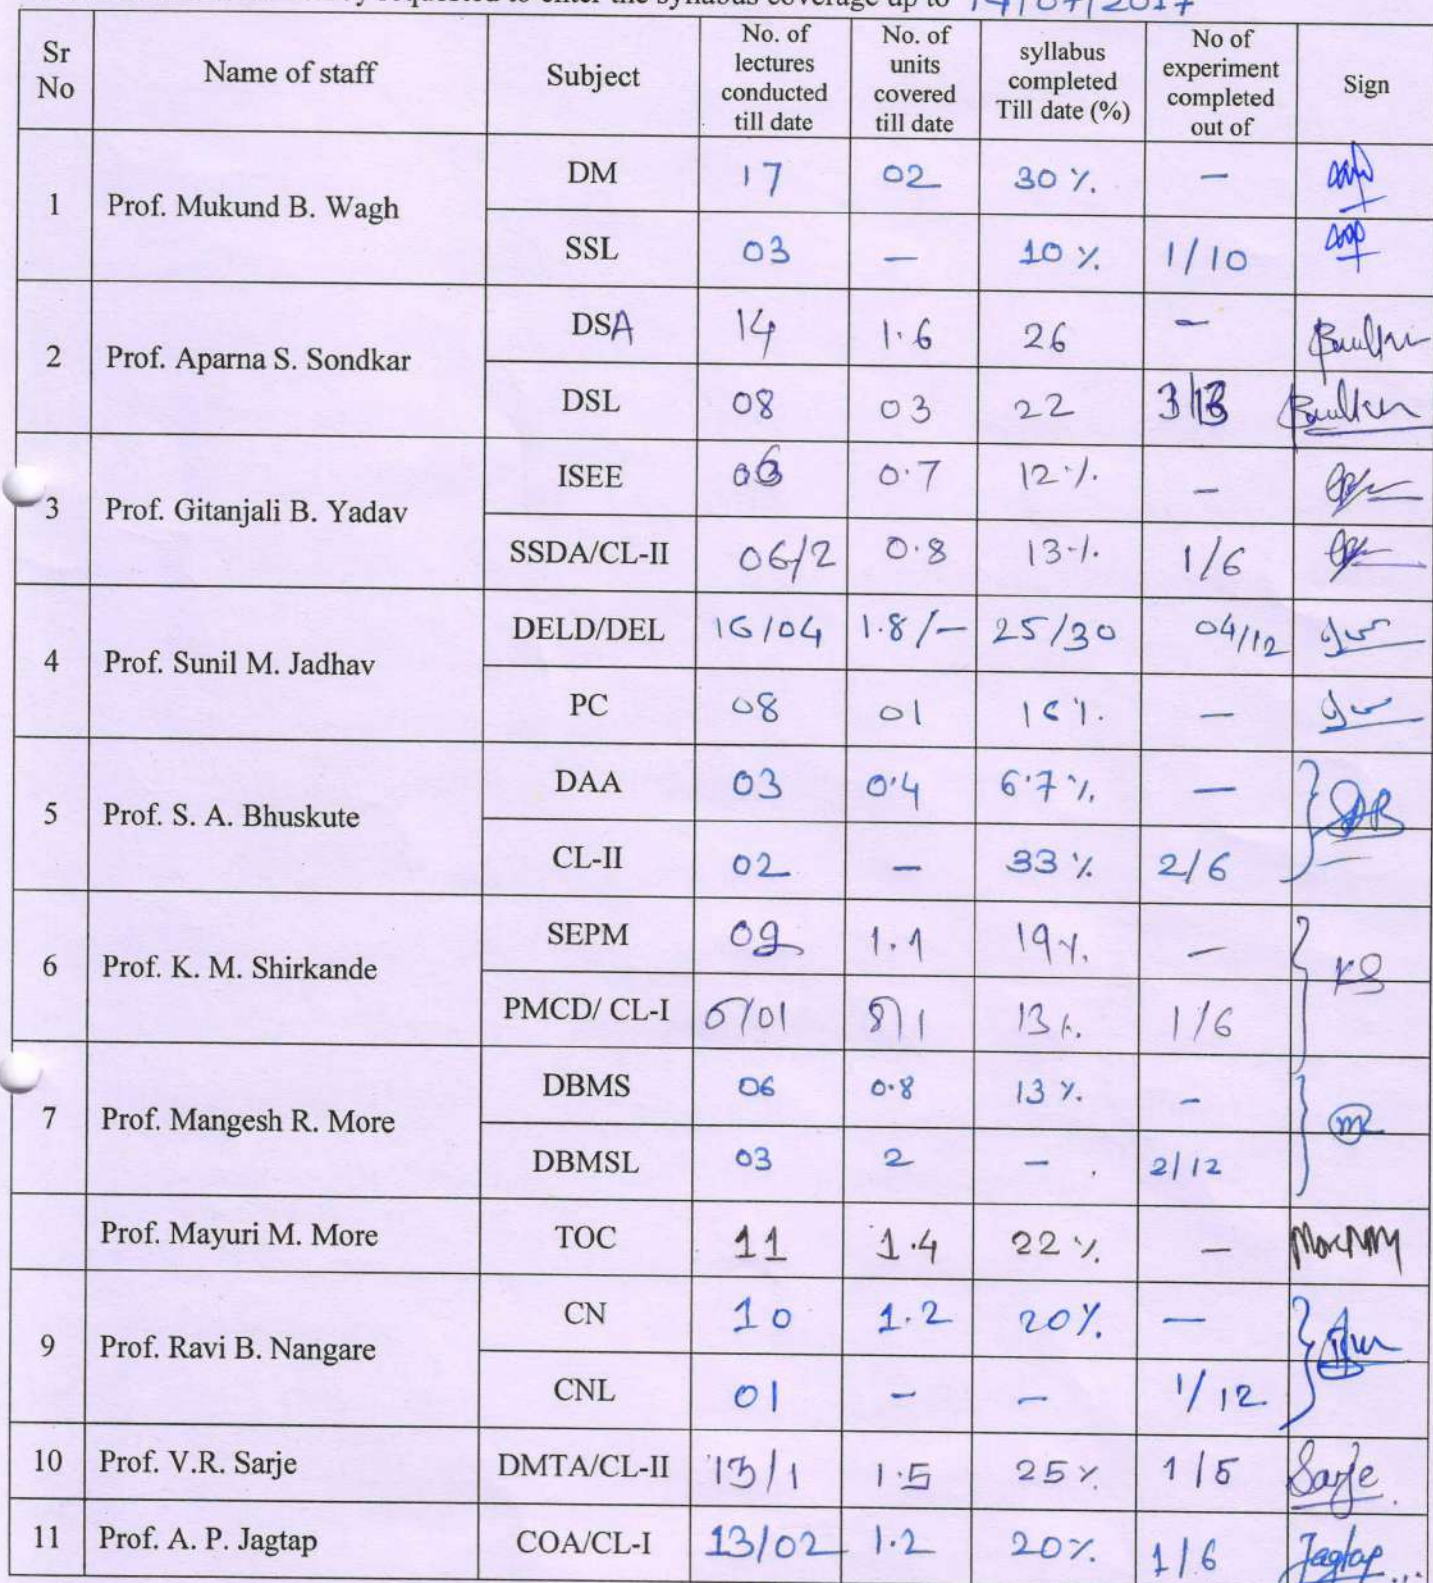 requested to enter the syllabus coverage up to 14/07/2017
Sr No Name of staff Subject No. of lectures conducted till date No. of units covered till date syllabus completed Till date (%) No of experiment completed out of Sign
1 Prof. Mukund B. Wagh DM 17 02 30 % —
SSL 03 — 10 % 1/10
2 Prof. Aparna S. Sondkar DSA 14 1.6 26 —
DSL 08 03 22 3/13
3 Prof. Gitanjali B. Yadav ISEE 0.7 12 % —
SSDA/CL-II 06/2 0.8 13 % 1/6
4 Prof. Sunil M. Jadhav DELD/DEL 16/04 1.8/— 25/30 04/12
PC 08 01 16 % —
5 Prof. S. A. Bhuskute DAA 03 0.4 6.7 % —
CL-II 02 — 33 % 2/6
6 Prof. K. M. Shirkande SEPM 09 1.1 19 % — KS
PMCD/ CL-I /01 13 % 1/6
7 Prof. Mangesh R. More DBMS 06 0.8 13 % —
DBMSL 03 2 — 2/12
Prof. Mayuri M. More TOC 11 1.4 22 % —
9 Prof. Ravi B. Nangare CN 10 1.2 20 % —
CNL 01 — — 1/12
10 Prof. V.R. Sarje DMTA/CL-II 13/1 1.5 25 % 1/5 Sarje
11 Prof. A. P. Jagtap COA/CL-I 13/02 1.2 20 % 1/6 Jagtap